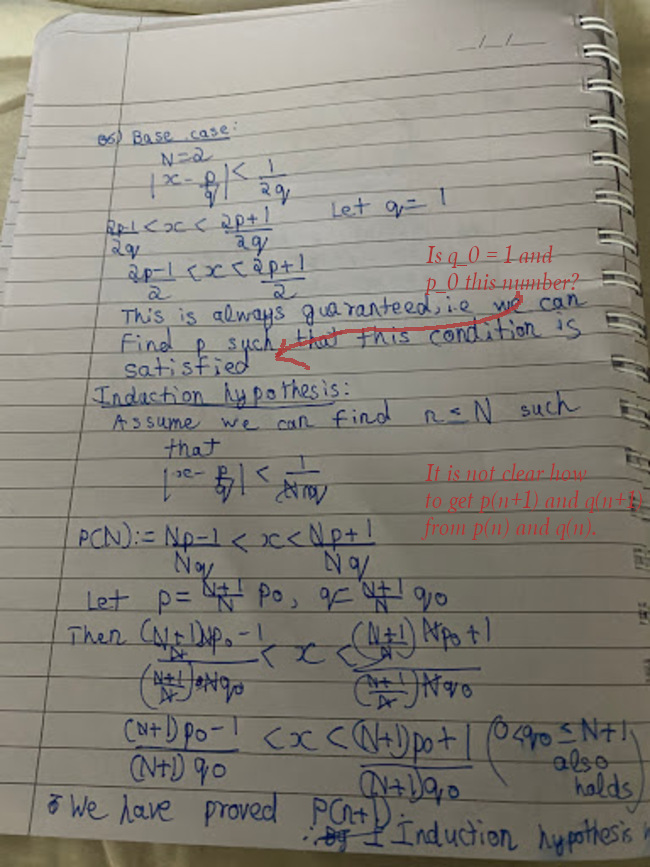 __/__/____
Q6) Base case:
N=2
|x - p/q| < 1/2q
Let q = 1
2p-1/2q < x < 2p+1/2q
2p-1/2 < x < 2p+1/2
Is q_0 = 1 and
p_0 this number?
This is always guaranteed, i.e we can
find p such that this condition is
satisfied
Induction hypothesis:
Assume we can find n ≤ N such
that
|x - p/q| < 1/Nq
It is not clear how
to get p(n+1) and q(n+1)
from p(n) and q(n).
P(N):= Np-1/Nq < x < Np+1/Nq
Let p = N+1/N p0, q = N+1/N q0
Then (N+1/N)Np0 - 1/(N+1/N)Nq0 < x < (N+1/N)Np0 + 1/(N+1/N)Nq0
(N+1)p0 - 1/(N+1)q0 < x < (N+1)p0 + 1/(N+1)q0 (0<q0 ≤ N+1
also
holds)
We have proved P(n+1).
∴ I Induction hypothesis